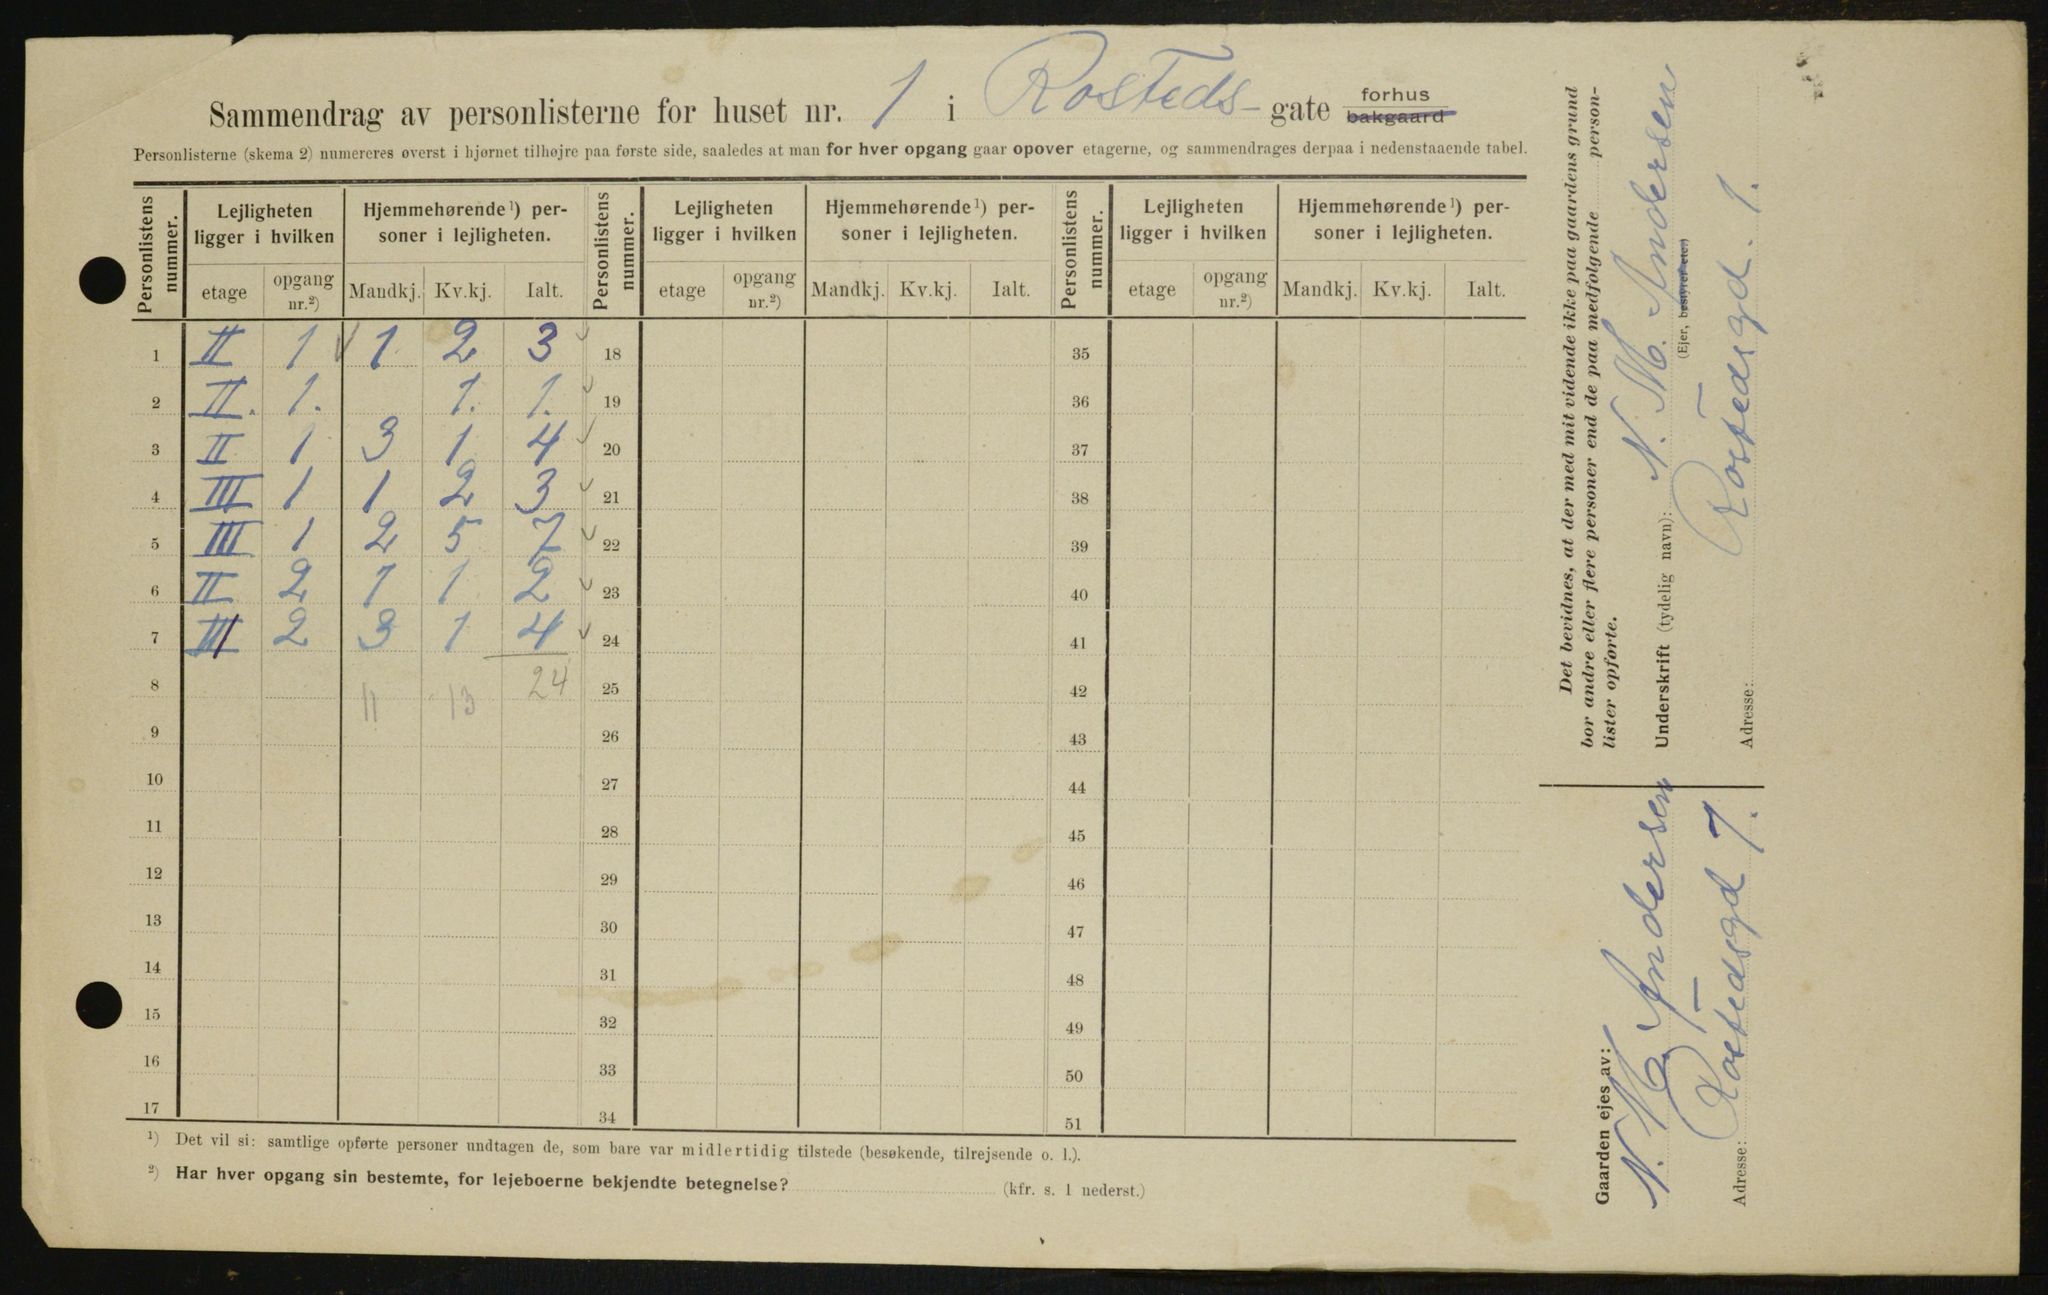 Sammendrag av personlisterne for huset nr. 1 i Rosteds- gate forhus bakgaard
Personlisterne (skema 2) numereres øverst i hjørnet tilhøjre paa første side, saaledes at man for hver opgang gaar opover etagerne, og sammendrages derpaa i nedenstaaende tabel.
Personlistens nummer. Lejligheten ligger i hvilken Hjemmehørende ¹) personer i lejligheten. Personlistens nummer. Lejligheten ligger i hvilken Hjemmehørende ¹) personer i lejligheten. Personlistens nummer. Lejligheten ligger i hvilken Hjemmehørende ¹) personer i lejligheten.
etage opgang nr.²) Mandkj. Kv.kj. Ialt. etage opgang nr.²) Mandkj. Kv.kj. Ialt. etage opgang nr.²) Mandkj. Kv.kj. Ialt.
1 II 1 √ 1 2 3 ✓ 18 35
2 II. 1. 1. 1. ✓ 19 36
3 II 1 3 1 4 ✓ 20 37
4 III 1 1 2 3 ✓ 21 38
5 III 1 2 5 7 ✓ 22 39
6 II 2 1 1 2 ✓ 23 40
7 III 2 3 1 4 ✓ 24 41
8 11 13 24 25 42
9 26 43
10 27 44
11 28 45
12 29 46
13 30 47
14 31 48
15 32 49
16 33 50
17 34 51
¹) Det vil si: samtlige opførte personer undtagen de, som bare var midlertidig tilstede (besøkende, tilrejsende o. l.).
²) Har hver opgang sin bestemte, for lejeboerne bekjendte betegnelse? (kfr. s. 1 nederst.)
Det bevidnes, at der med mit vidende ikke paa gaardens grund
bor andre eller flere personer end de paa medfølgende person-
lister opførte.
Underskrift (tydelig navn): N. M. Andersen
(Ejer, bestyrer etc.)
Rostedsgd. 1.
Adresse:
Gaarden ejes av:
N. M. Andersen
Adresse: Rostedsgd 1.